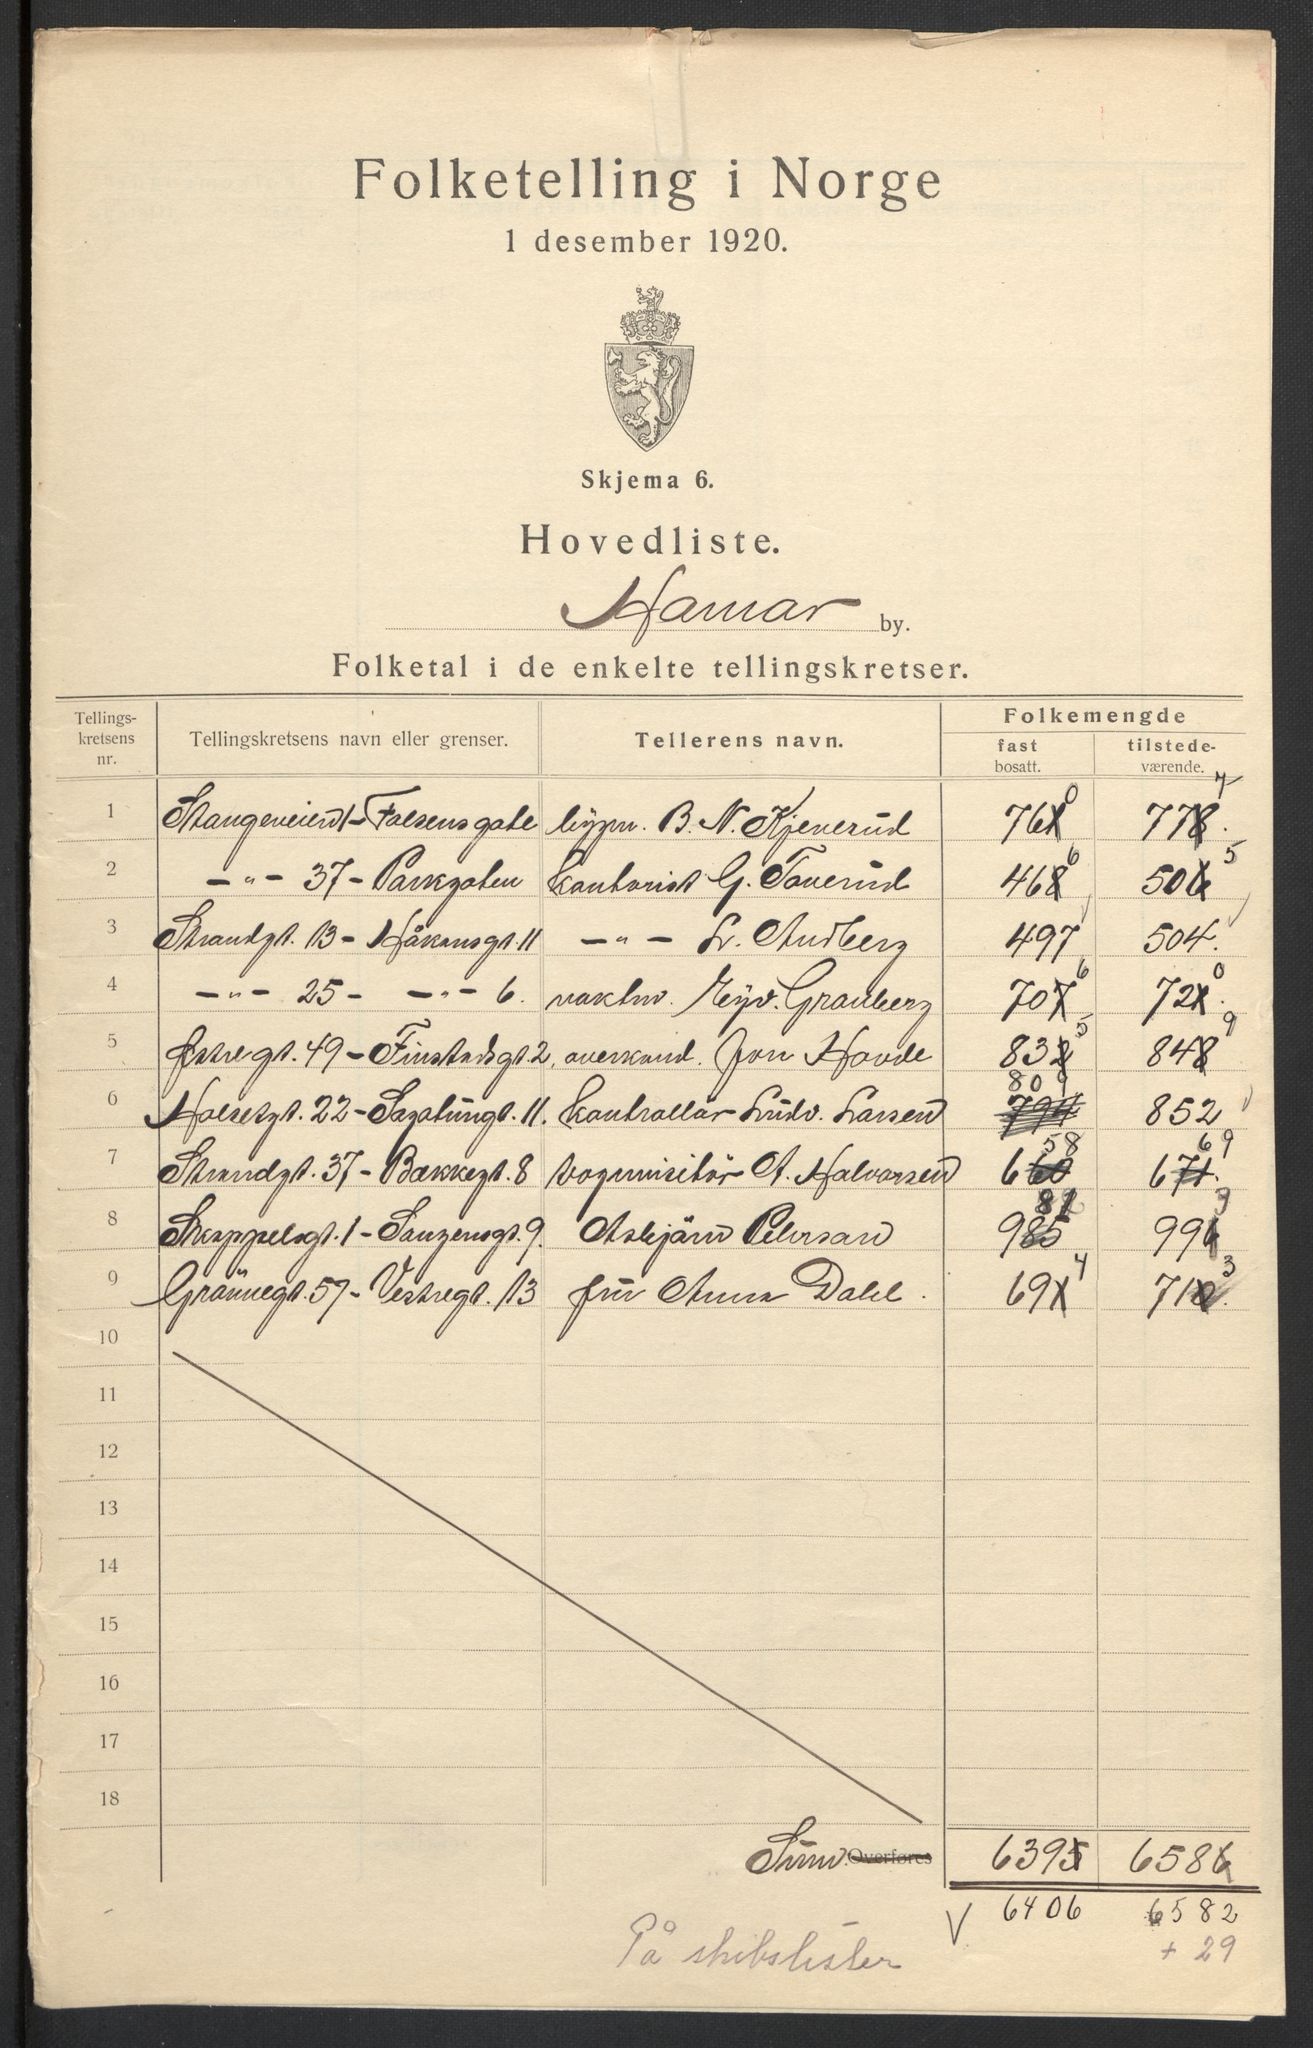 Folketelling i Norge
1 desember 1920.
Skjema 6.
Hovedliste.
Hamar by.
Folketal i de enkelte tellingskretser.
Tellings-kretsens nr. Tellingskretsens navn eller grenser. Tellerens navn. Folkemengde fast bosatt. tilstede-værende.
1 Stangeveien 1 - Falsensgate B. N. Kjeverud 761 0 778 7
2 -"- 37 - Parkgaten kontorist G. Toverud 468 6 506 5
3 Strandgt. 13 - Håkonsgt. 11 -"- Lr. Audberg 497 504.
4 -"- 25 - -"- 6. vaktm. Granberg 707 6 721 0
5 Østregt. 49 - Finstadsgt. 2, Jon Hovde 832 5 848 9
6 Holsetgt. 22 - Sagatungt. 11. kontrollør Ludv. Larsen 794 809 852
7 Strandgt. 37 - Bækkegt. 8 vognvisitør A. Halvorsen 660 58 671 69
8 Skappelsgt. 1 - Sanzensgt. 9. Asbjørn Peterson 985 82 996 3
9 Grønnegt. 57 - Vestregt. 13 frü Anna Dahl. 691 4 710 3
10
11
12
13
14
15
16
17
18
Sum. Overføres 6395 6586
V 6406 6582
På skibslister + 29